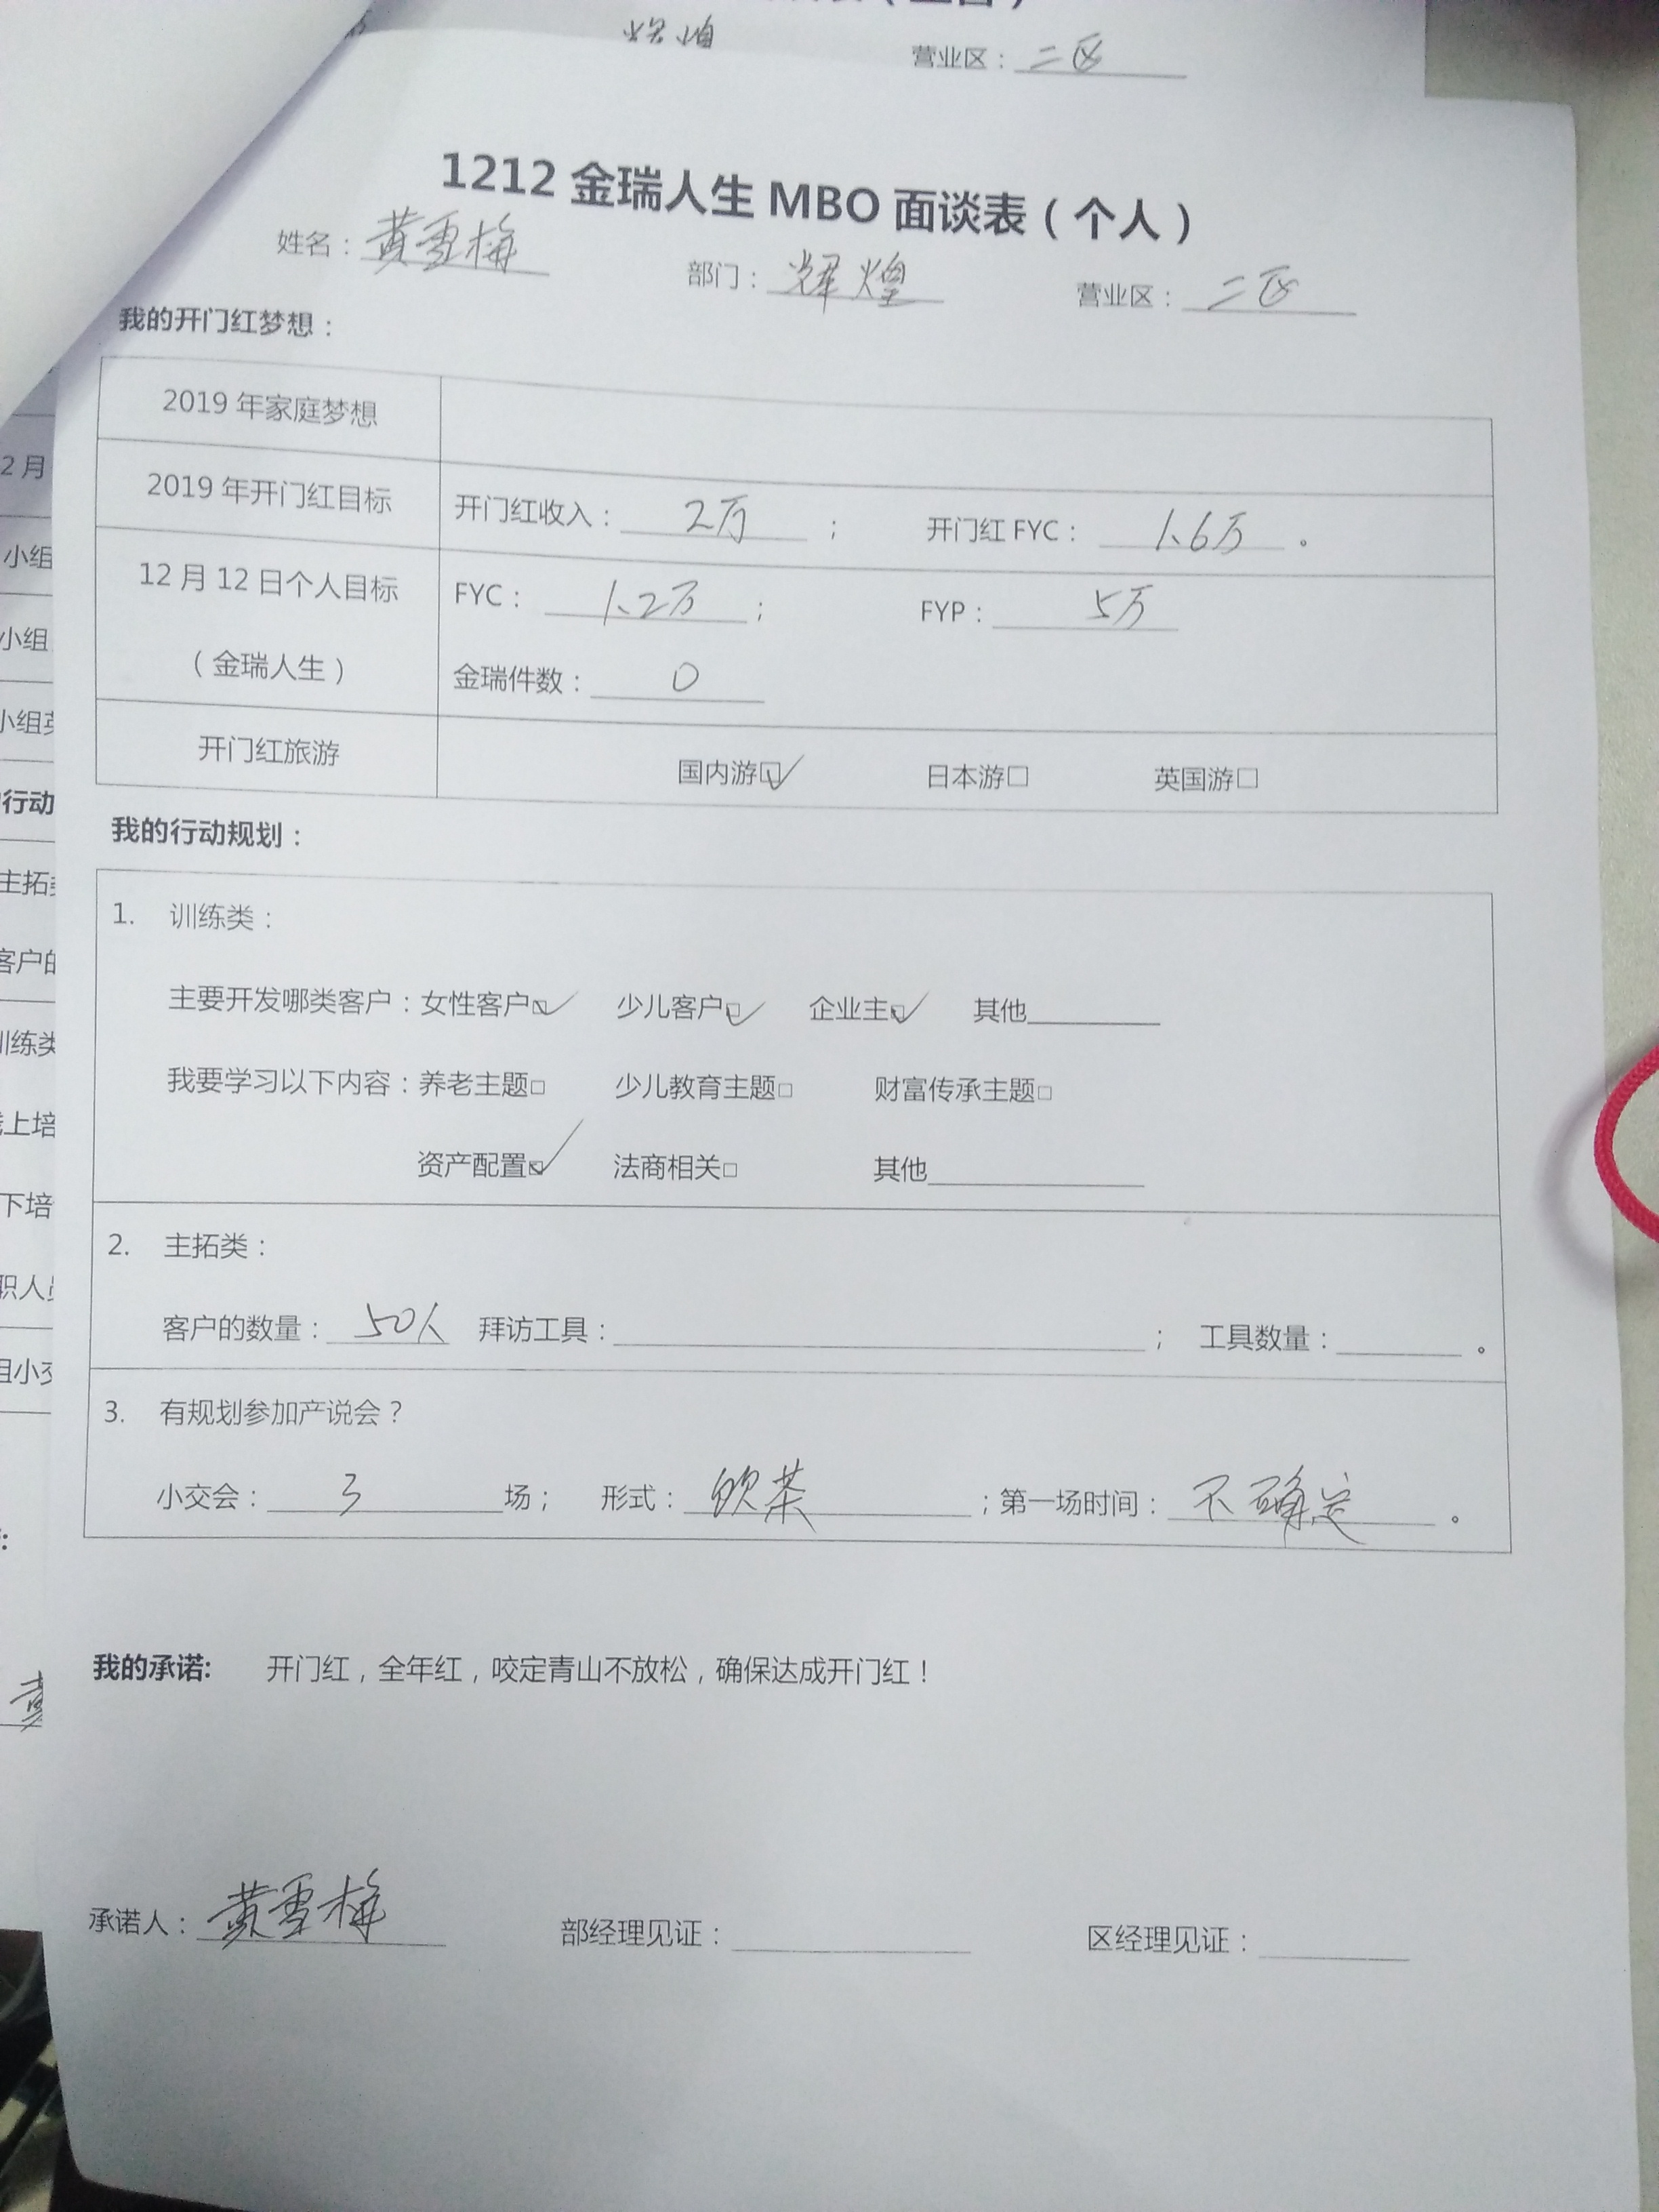 营业区：二区
1212 金瑞人生 MBO 面谈表（个人）
姓名：黄雪梅 部门：辉煌 营业区：二区
我的开门红梦想：
2019 年家庭梦想
2019 年开门红目标 开门红收入：2万； 开门红 FYC：1.6万。
12 月 12 日个人目标 FYC：1.2万； FYP：5万
（金瑞人生） 金瑞件数：0
开门红旅游 国内游☑ 日本游□ 英国游□
我的行动规划：
1. 训练类：
主要开发哪类客户：女性客户☑ 少儿客户☑ 企业主☑ 其他
我要学习以下内容：养老主题□ 少儿教育主题□ 财富传承主题□
资产配置☑ 法商相关□ 其他
2. 主拓类：
客户的数量：50人 拜访工具：； 工具数量：。
3. 有规划参加产说会？
小交会：3场； 形式：饮茶；第一场时间：不确定。
我的承诺: 开门红，全年红，咬定青山不放松，确保达成开门红！
承诺人：黄雪梅 部经理见证： 区经理见证：
2月
小组
小组
小组
行动
主拓
客户的
训练类
上培
下培
职人
组小交